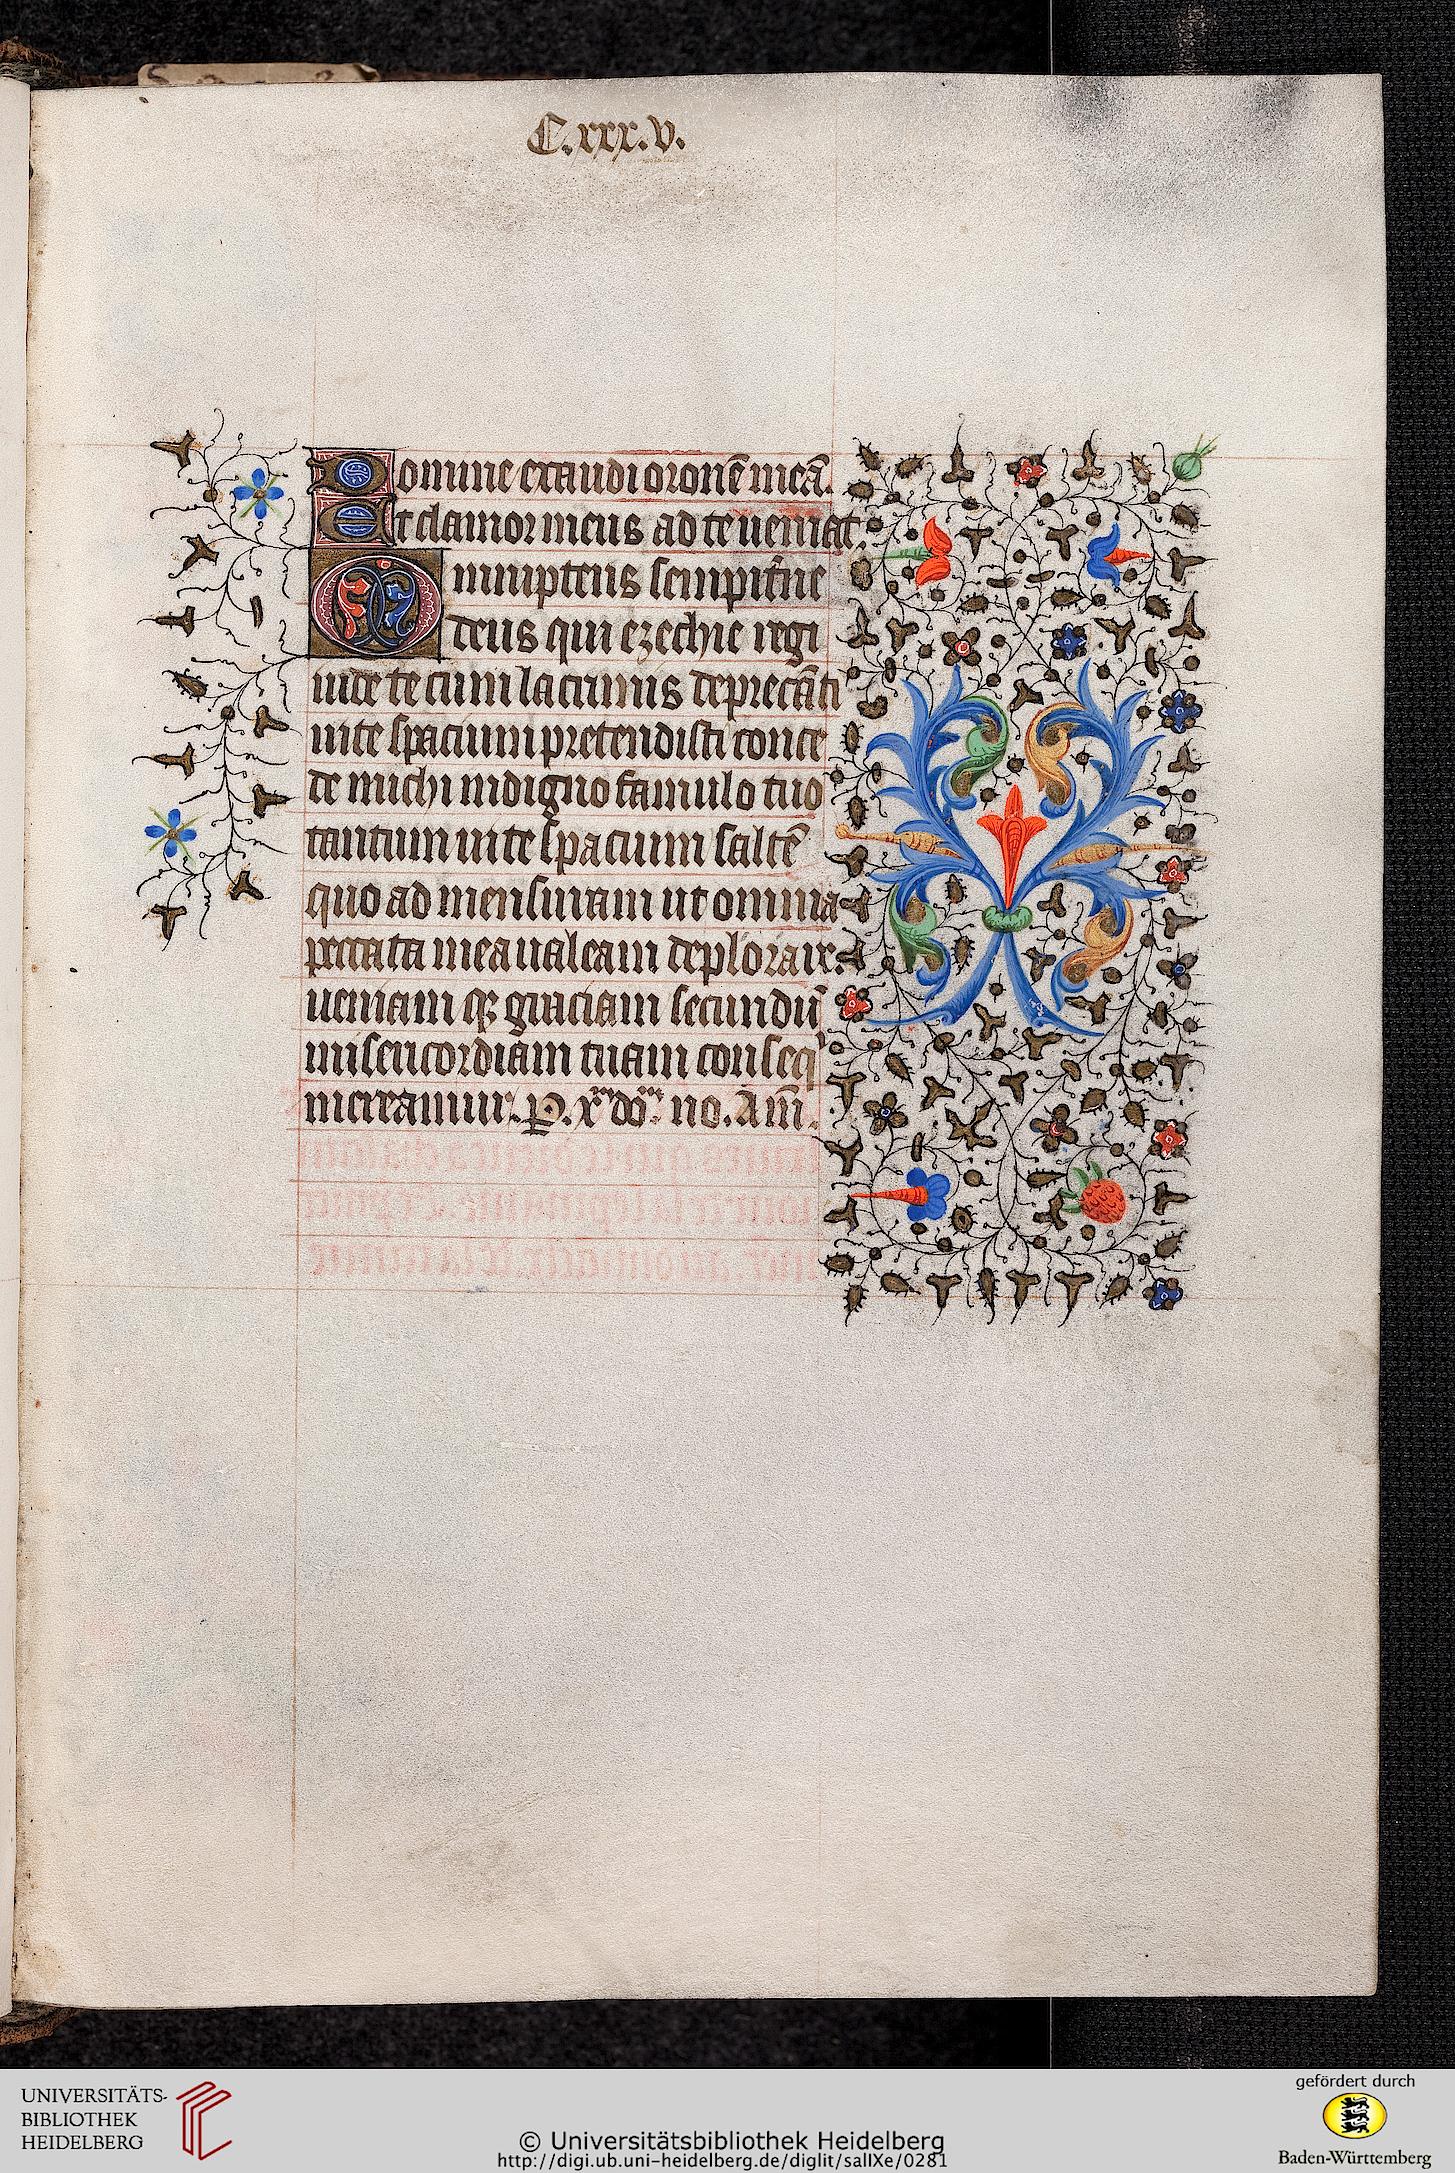 C.xxx.v.
Domine exaudi oronē meā.
Et clamor meus ad te ueniat.
Omnipotens sempit'ne
deus qui ezechie regi
iude te cum lacrimis deprecāti
uite spacium pretendisti conce
de michi indigno famulo tuo
tantum uite spacium saltē
quo ad mensuram ut omnia
peccata mea ualeam deplorare.
ueniam q3 graciam secundū
misericordiam tuam conseq
mereamur. p. xm dōm no. Am̄.
UNIVERSITÄTS-
BIBLIOTHEK
HEIDELBERG
© Universitätsbibliothek Heidelberg
http://digi.ub.uni-heidelberg.de/diglit/salIXe/0281
gefördert durch
Baden-Württemberg